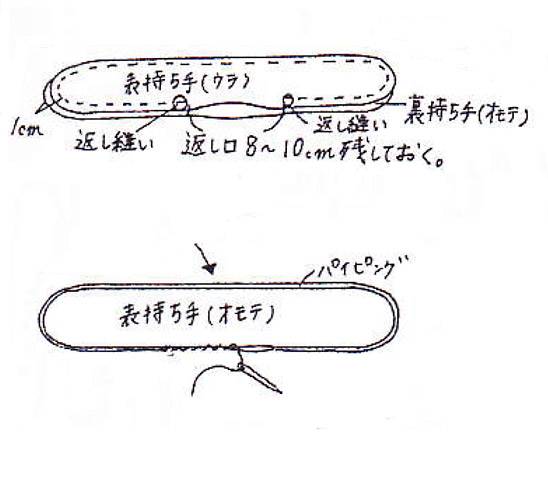 表持ち手(ウラ)
裏持ち手(オモテ)
1cm
返し縫い
返し口8〜10cm残しておく。
返し縫い
パイピング
表持ち手(オモテ)